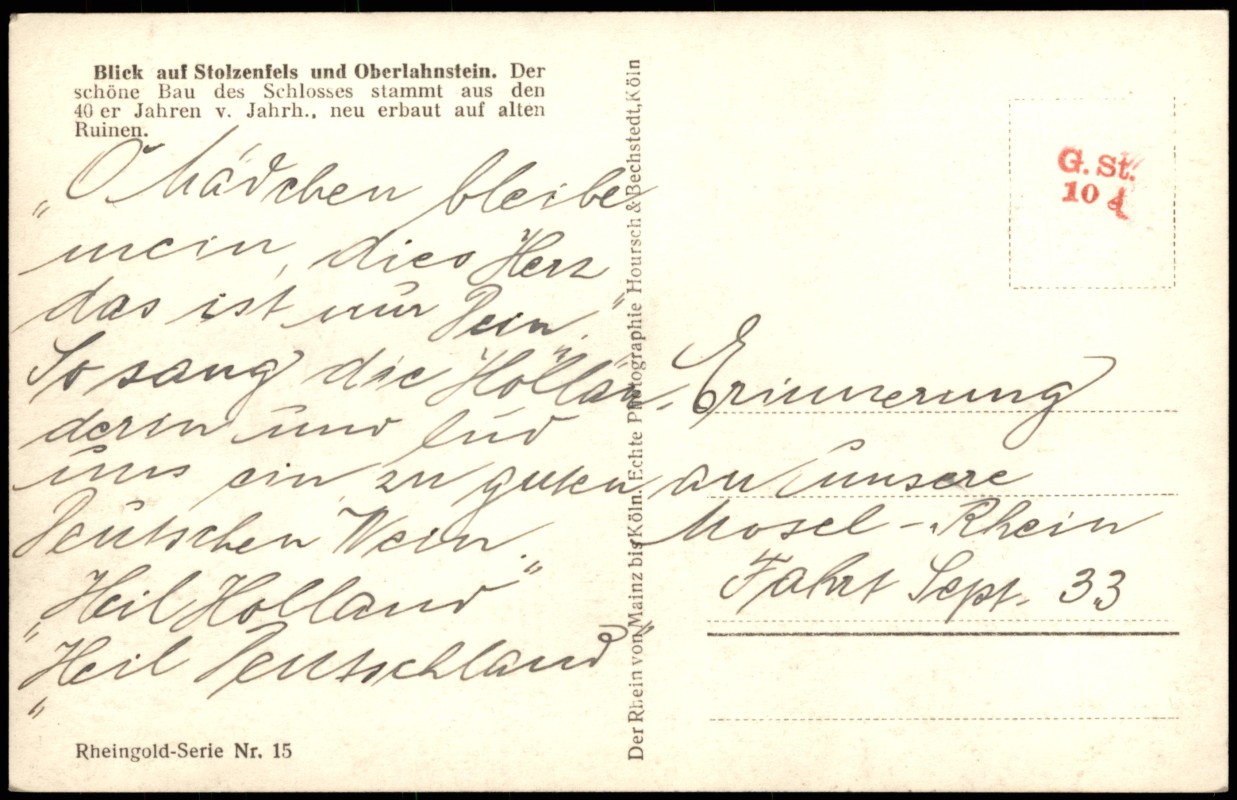 Blick auf Stolzenfels und Oberlahnstein. Der
schöne Bau des Schlosses stammt aus den
40 er Jahren v. Jahrh., neu erbaut auf alten
Ruinen.
„O Mädchen bleibe
mein, dies Herz
das ist nur Dein."
So sang die Hollän-
derin und lud
uns ein zu guten
Deutschen Wein.
„Heil Holland"
„Heil Deutschland"
Rheingold-Serie Nr. 15
Der Rhein von Mainz bis Köln. Echte Photographie Hoursch & Bechstedt, Köln
G. St.
10 ₰
Erinnerung
an unsere
Mosel-Rhein
Fahrt Sept. 33